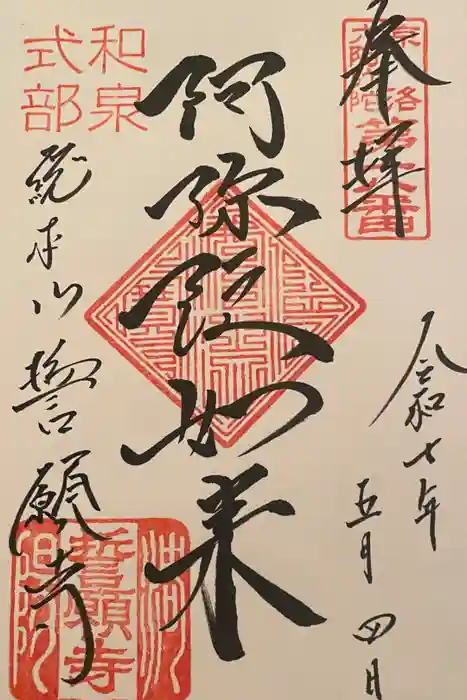 奉拝
京洛
六阿弥陀
第六番
令和七年
五月四日
阿弥陀如来
和泉
式部
総本山誓願寺
誓願寺